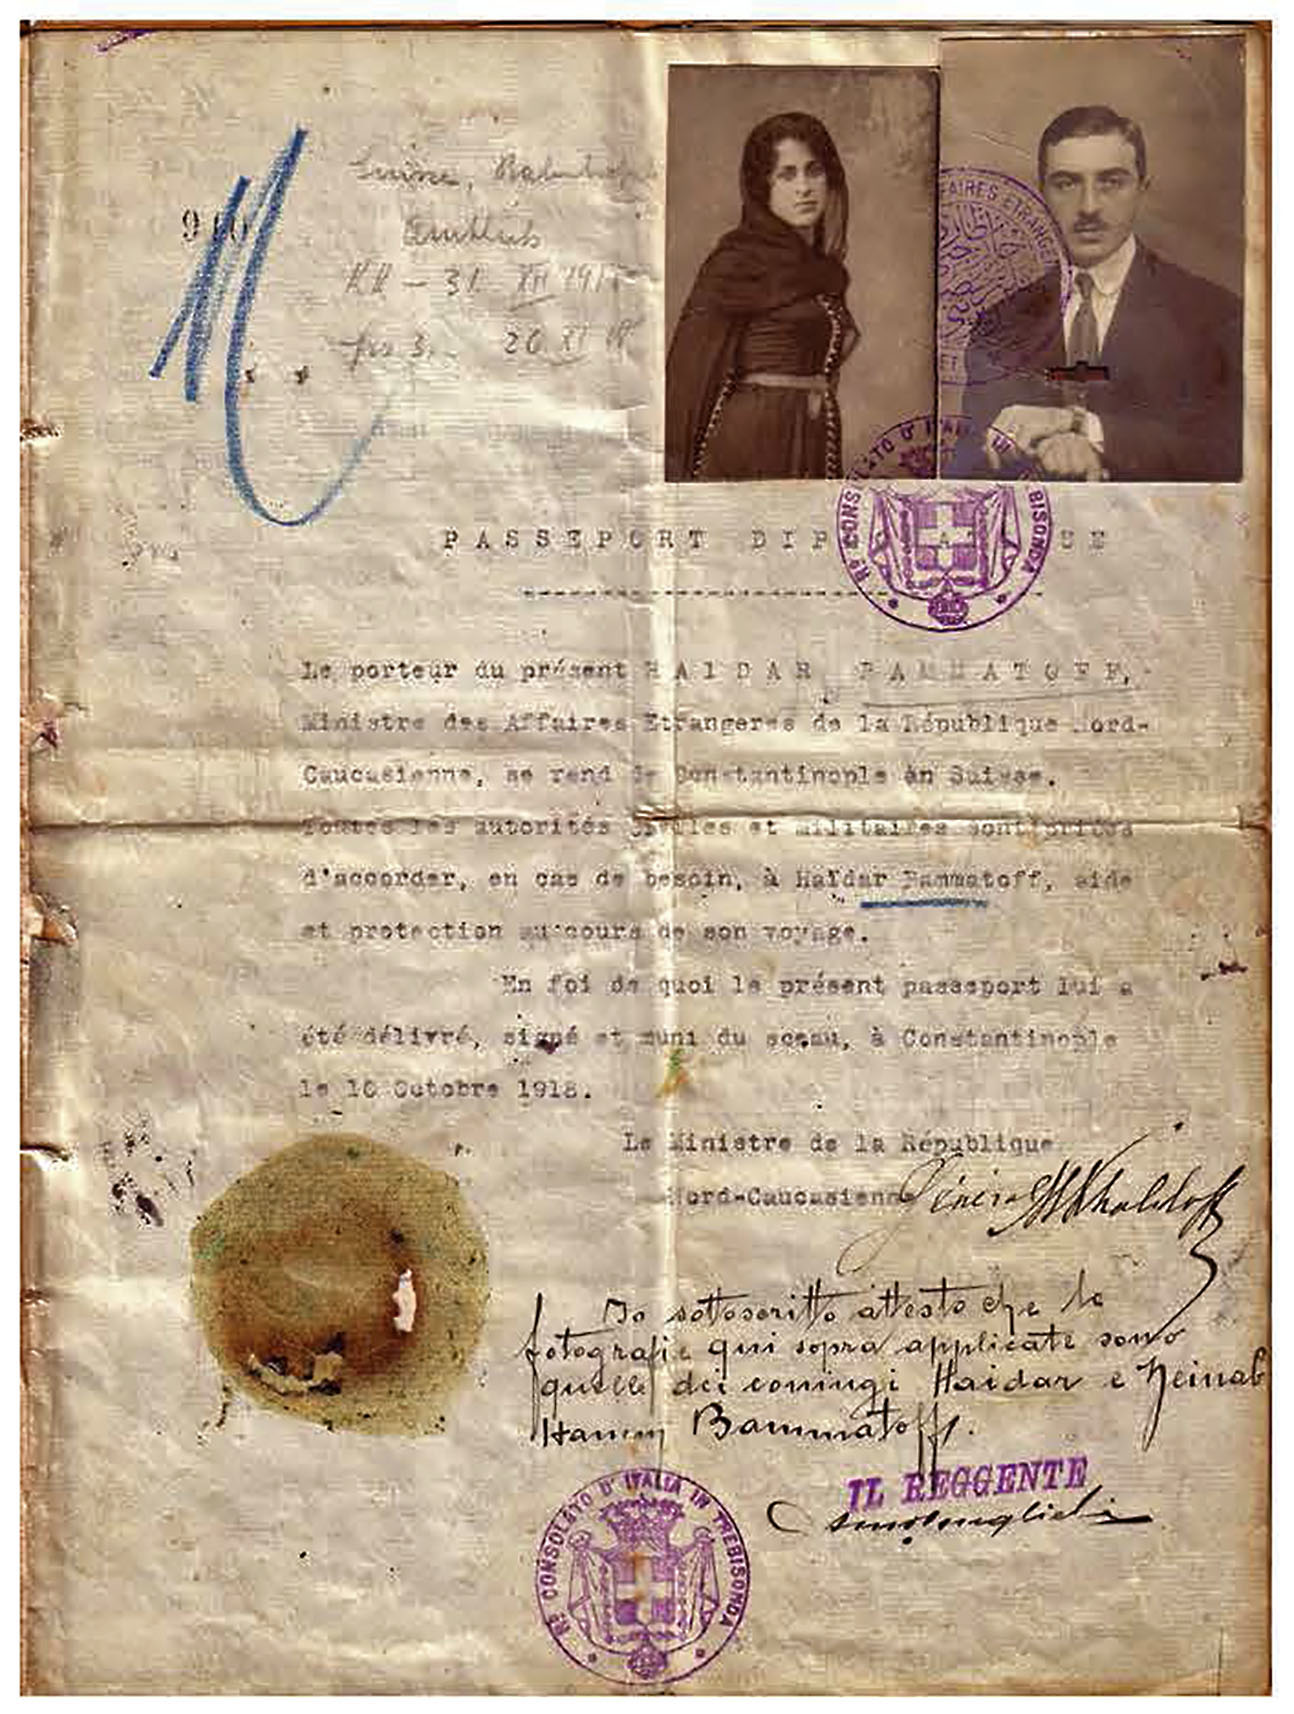 AFFAIRES ETRANGER
Suisse,
KK - 31. XII 191
frs 3.- 26 XI 18
Rº CONSOLATO D'ITALIA IN TREBISONDA
PASSEPORT DIP A UE
Le porteur du présent HAIDAR BAMMATOFF,-
Ministre des Affaires Etrangeres de la République Nord-
Caucasienne, se rend de Constantinople en Suisse.
Toutes les autorités civiles et militaires sont priées
d'accorder, en cas de besoin, à Haïdar Bammatoff, aide
et protection au cours de son voyage.
En foi de quoi le présent passeport lui a
été délivré, signé et muni du sceau, à Constantinople
le 10 Octobre 1918.
Le Ministre de la République
Nord-Caucasienne
Io sottoscritto attesto che le
fotografie qui sopra applicate sono
quelle dei coniugi Haidar e Zeinab
Hanum Bammatoff.
IL REGGENTE
Rº CONSOLATO D'ITALIA IN TREBISONDA